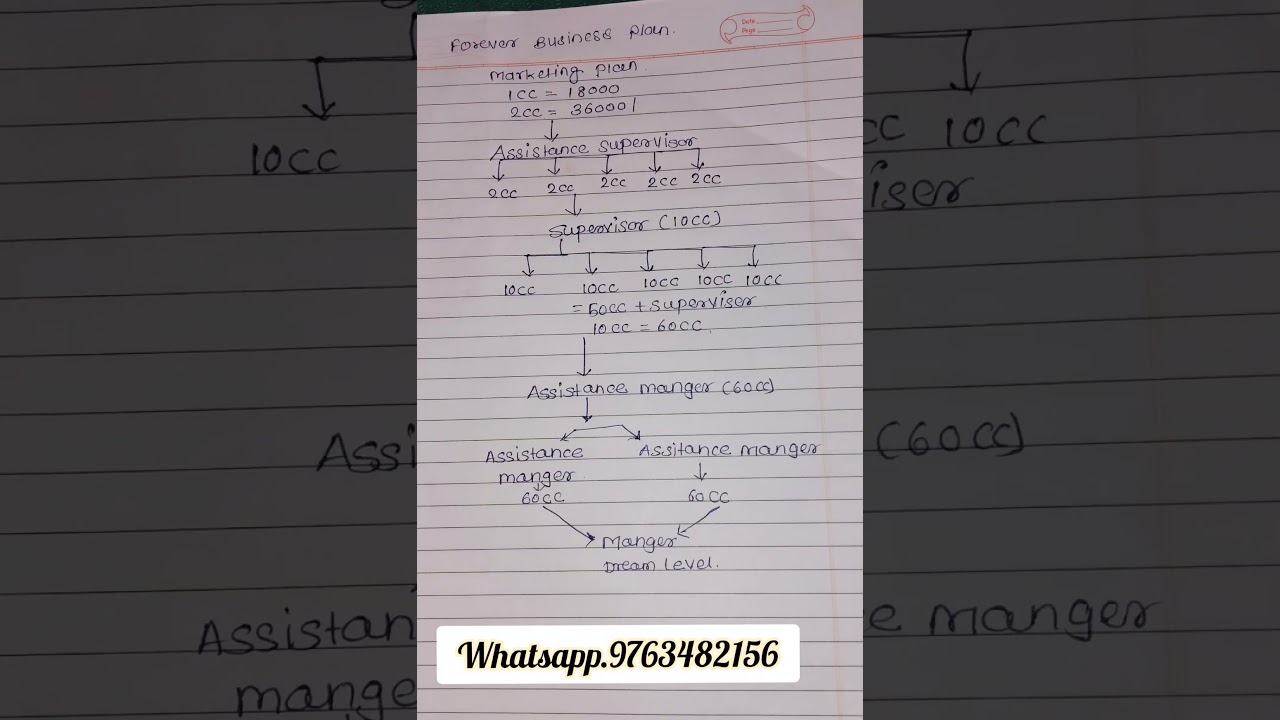 Forever Business Plan.
Date
Page
Marketing Plan.
1CC = 18000
2CC = 36000/
Assistance Supervisor
2CC 2CC 2CC 2CC 2CC
Supervisor (10CC)
10CC 10CC 10CC 10CC 10CC
= 50CC + Supervisor
10CC = 60CC.
Assistance manger (60CC)
Assistance manger
60CC
Assitance manger
60CC
Manger
Dream Level.
Whatsapp.9763482156
10CC
CC 10CC
iser
Assi
(60CC)
Assistan
mange
e manger